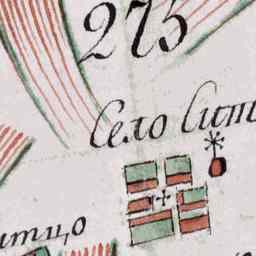 275
Село Сит
итцо